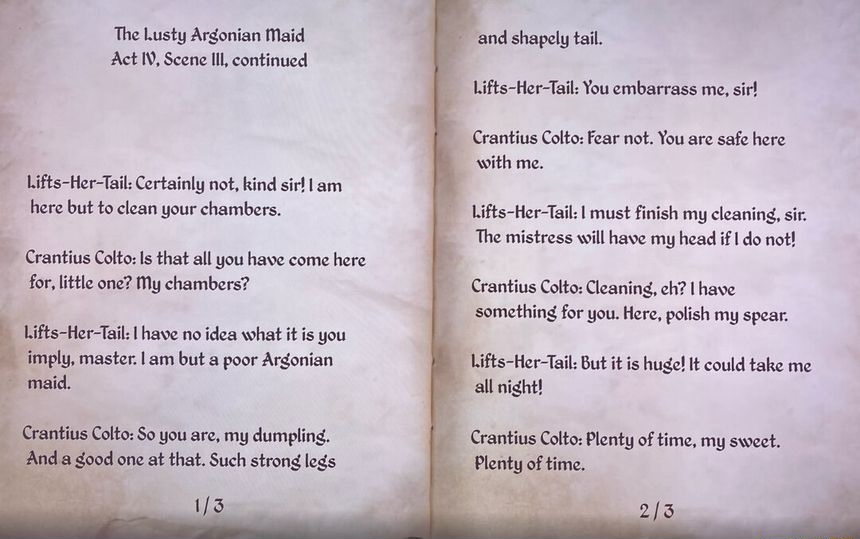 The Lusty Argonian Maid
Act IV, Scene III, continued
Lifts-Her-Tail: Certainly not, kind sir! I am
here but to clean your chambers.
Crantius Colto: Is that all you have come here
for, little one? My chambers?
Lifts-Her-Tail: I have no idea what it is you
imply, master. I am but a poor Argonian
maid.
Crantius Colto: So you are, my dumpling.
And a good one at that. Such strong legs
1/3
and shapely tail.
Lifts-Her-Tail: You embarrass me, sir!
Crantius Colto: Fear not. You are safe here
with me.
Lifts-Her-Tail: I must finish my cleaning, sir.
The mistress will have my head if I do not!
Crantius Colto: Cleaning, eh? I have
something for you. Here, polish my spear.
Lifts-Her-Tail: But it is huge! It could take me
all night!
Crantius Colto: Plenty of time, my sweet.
Plenty of time.
2/3